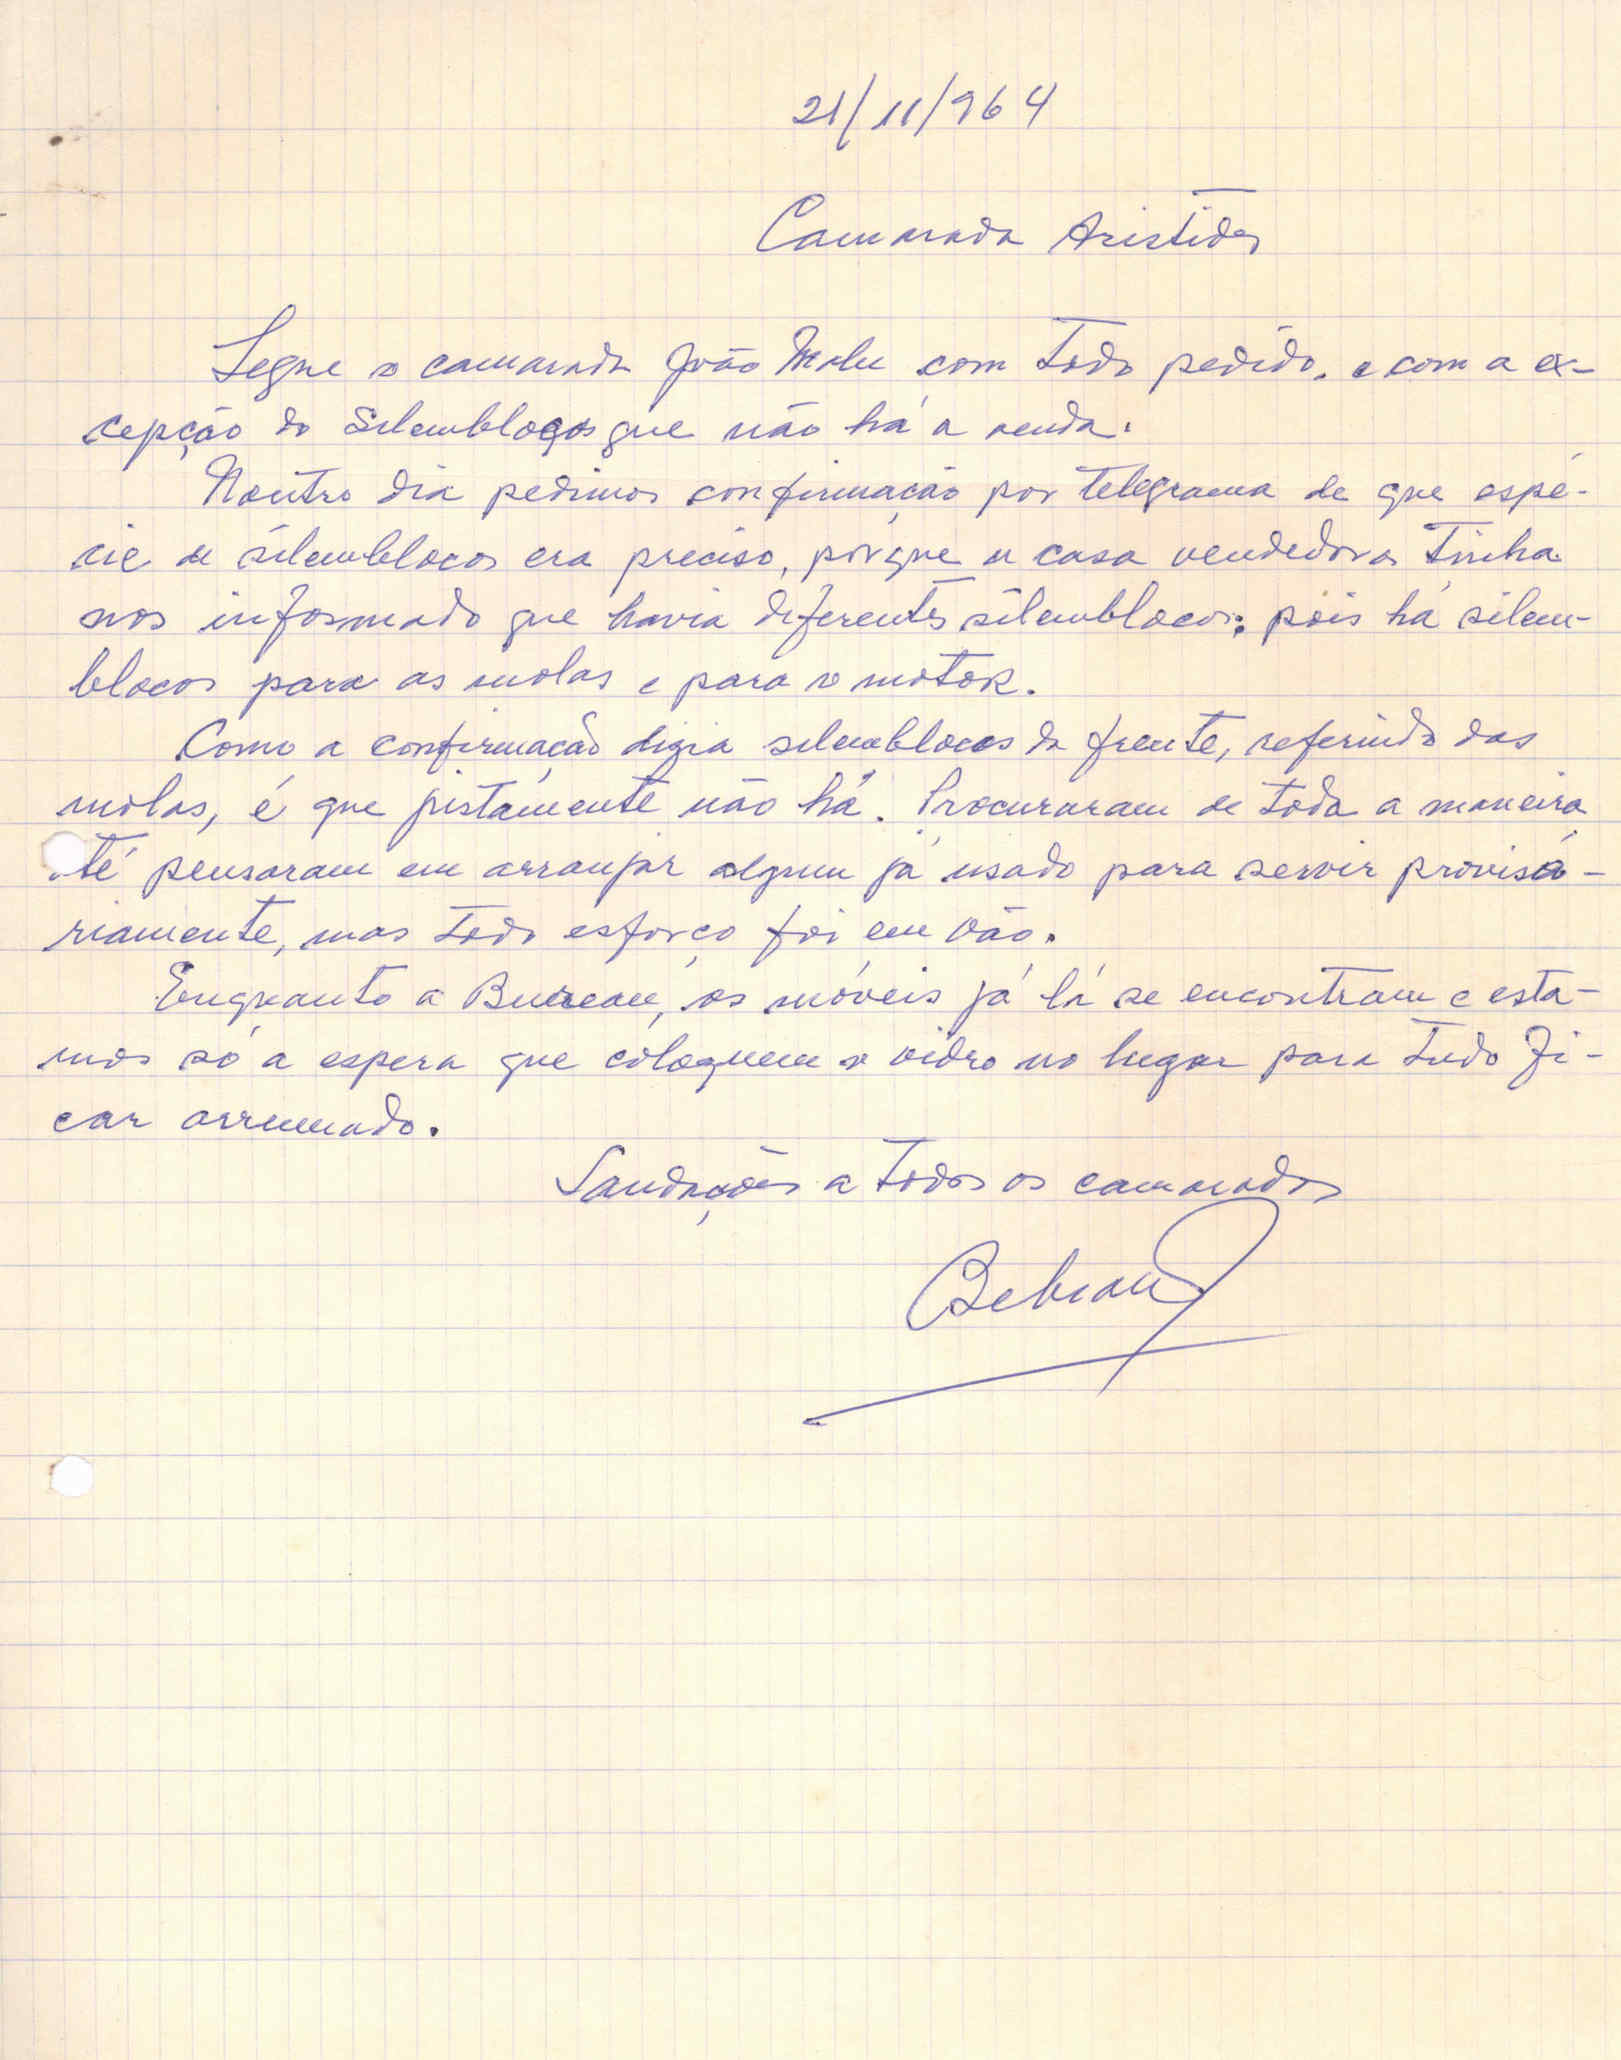 21/11/964
Camarada Aristides
Segue o camarada João Malu com todo pedido, e com a ex-
cepção do Silemblocos que não há a venda.
Noutro dia pedimos confirmação por telegrama de que espé-
cie de silemblocos era preciso, porque a casa vendedora tinha
nos informado que havia diferentes silemblocos; pois há silem-
blocos para as molas e para o motor.
Como a confirmação dizia silemblocos da frente, referindo das
molas, é que justamente não há. Procuraram de toda a maneira
té pensaram em arranjar algum já usado para servir provisó-
riamente, mas todo esforço foi em vão.
Enquanto a Bureau, os móveis já lá se encontram e esta-
mos só a espera que coloquem o vidro no lugar para tudo fi-
car arrumado.
Saudações a todos os camaradas